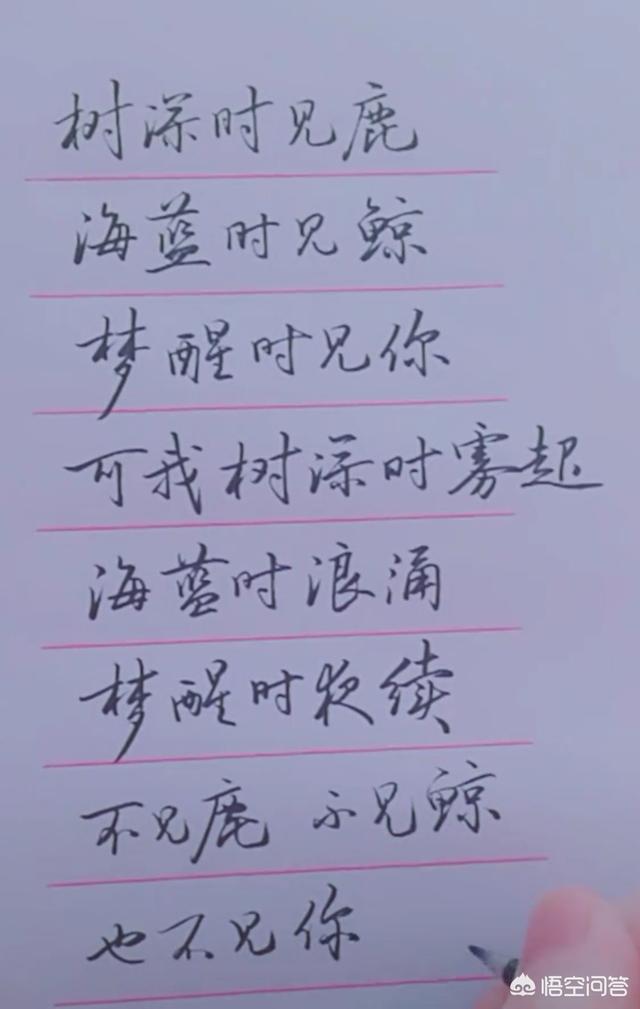 树深时见鹿
海蓝时见鲸
梦醒时见你
可我树深时雾起
海蓝时浪涌
梦醒时夜续
不见鹿 不见鲸
也不见你
悟空问答